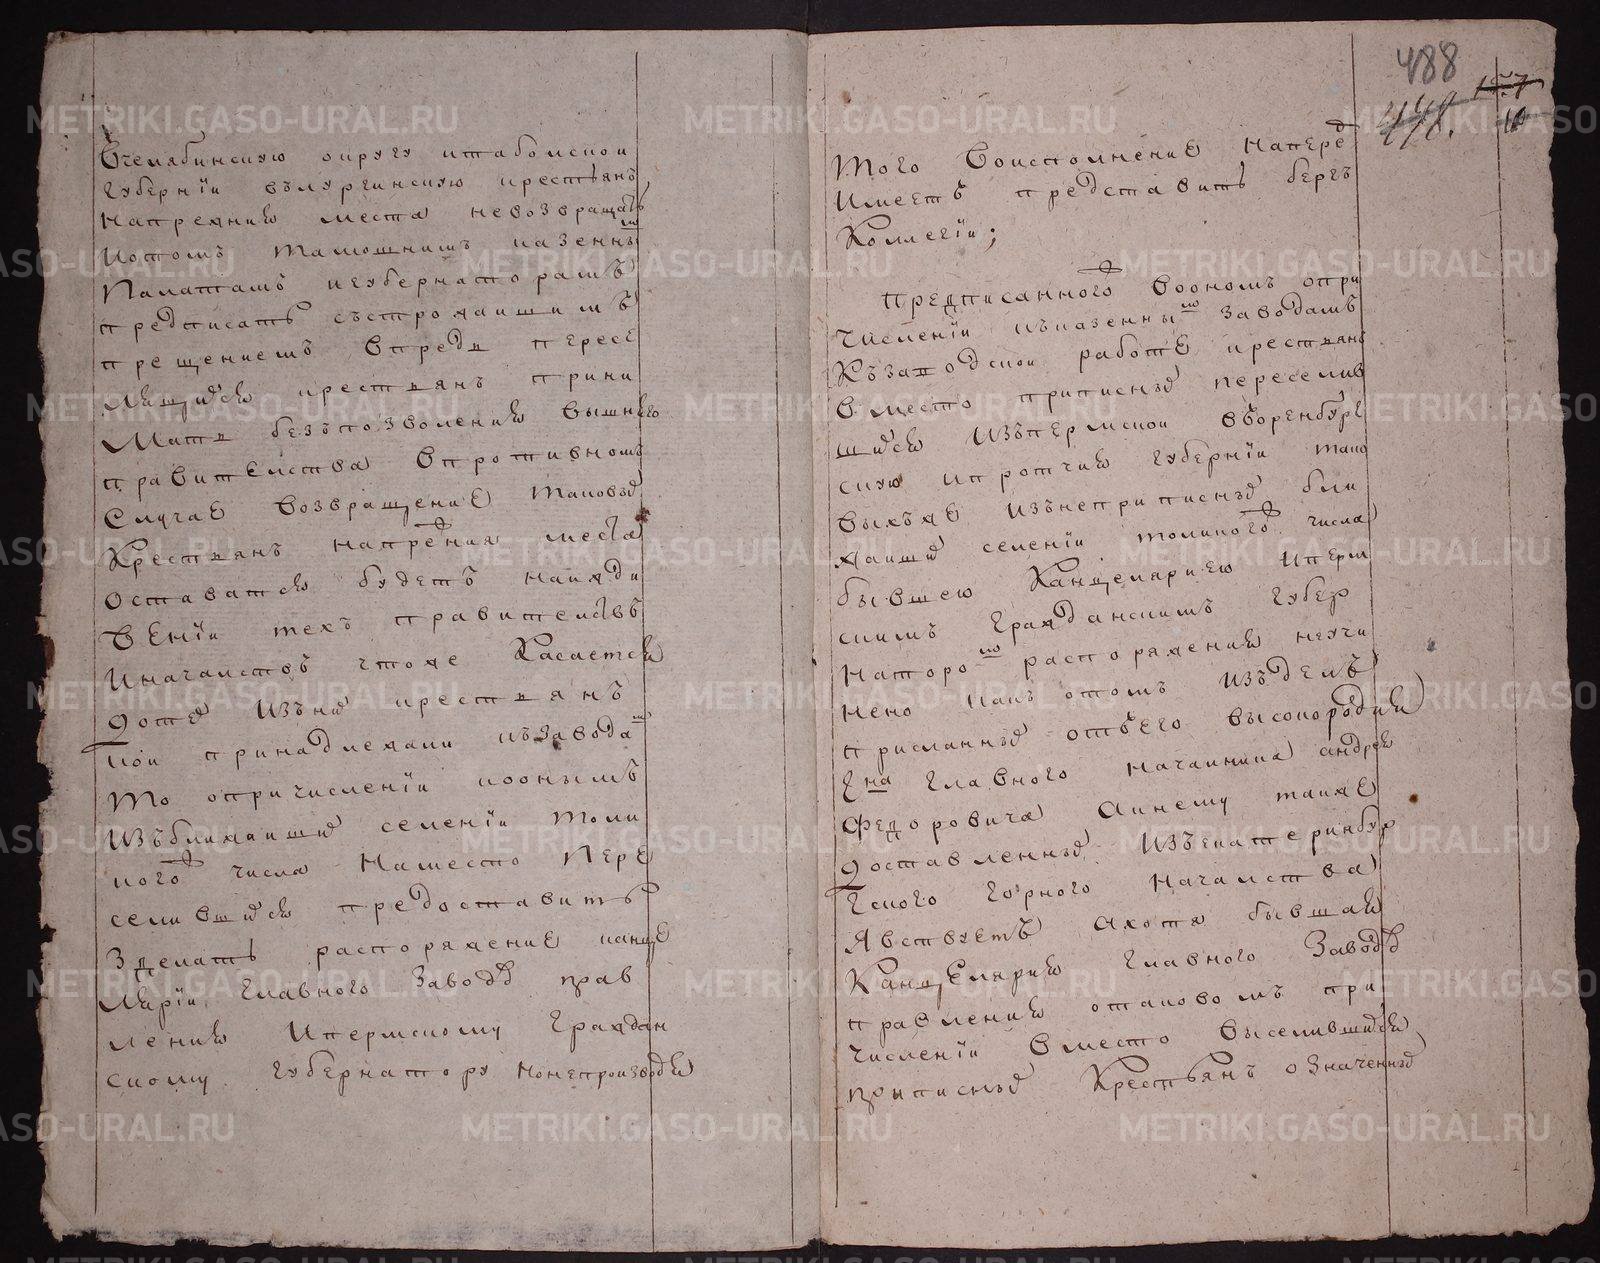 Вчелябинскую округу итабольской
Губернїи вълургинскую крестьянъ
напрежния места невозвращать
потомъ тамошнимъ казенны м
Палатамъ игубернаторамъ
предписать състрожаишимъ
прещениемъ впредь пересе
лящихся крестьянъ прини
мать безъпозволения вышнего
правительства впротивномъ
Случае возвращение таковых
Крестьянъ напрежния места
оставатся будетъ наижди
венїи техъ правительствъ
иначальствъ чтоже Касается
дотех изъних крестьян
кои принадлежали къзавода м
то опричисленїи коонымъ
изъближаиших селенїи толи
кого числа наместо пере
селившихся предоставить
Зделать распоряжение канце
лярїи главного Заводовъ прав
ления ипермскому Граждан
скому губернатору ионепроизводя
488
448.
157
10
того воисполнение наперед
имеетъ представить бергъ
Коллегїи;
предписанного воономъ опри
числении къказенным заводамъ
Къзаводской работе крестьянъ
вместо приписных переселив
шихся изъпермской въоренбург
скую ипротчия губернїи тако
выхъже изънеприписных бли
жаиших селенїи толикого числа
бывшею Канцеляриею иперм
скимъ гражданскимъ губер
наторомъ распоряжения неучи
нено какъ отомъ изъделъ
присланных отъего высокородия
г на главного начальника андрея
Федоровича Аинему также
доставленных изъекатеринбур
гского горного начальства
явствуетъ Ахотя бывшая
Канцелярия главного Заводовъ
правления отаковомъ при
числении вместо выселившихся
приписных Крестьянъ означенных
METRIKI.GASO-URAL.RU